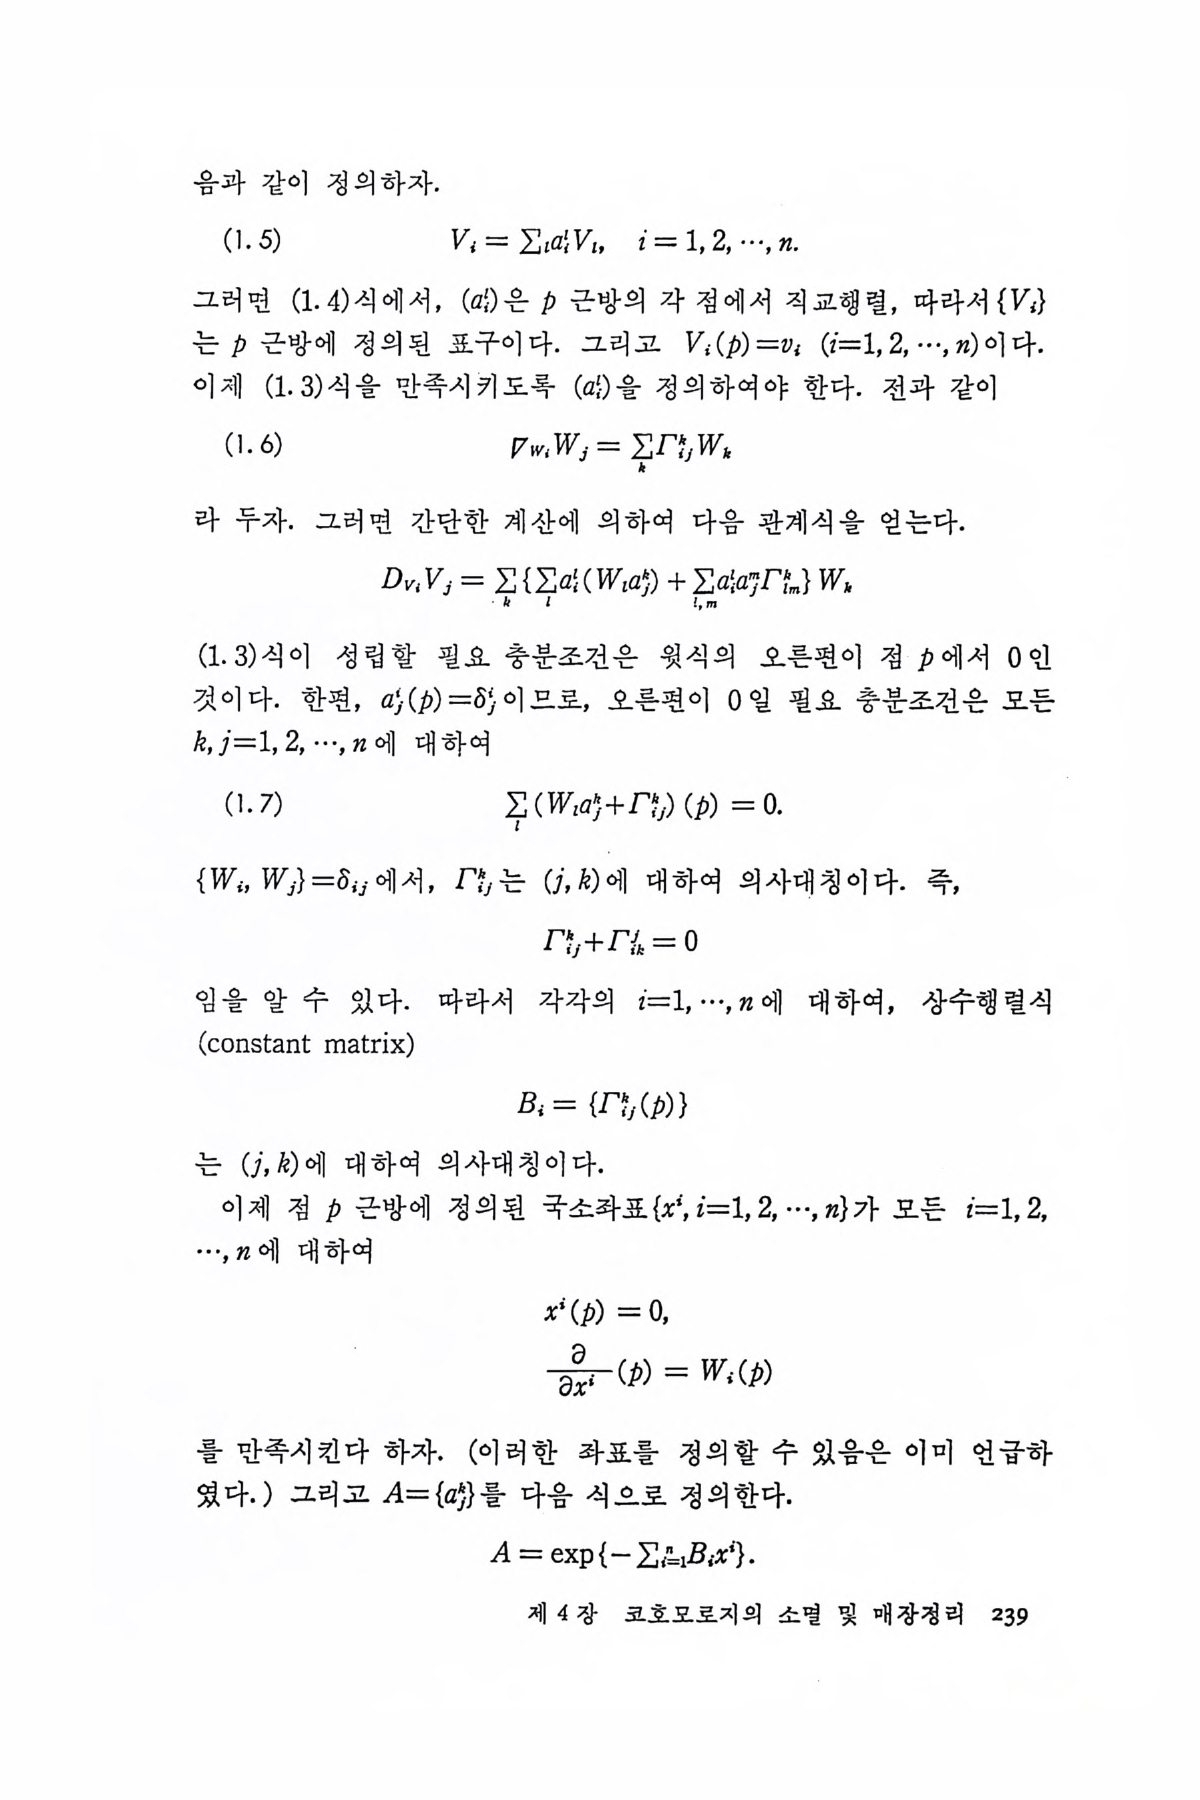 음과 같이 정의하자.
(1.5) Vᵢ = ∑ₗaᵢˡVₗ, i = 1, 2, ⋯, n.
그러면 (1.4)식에서, (aᵢˡ)은 p 근방의 각 점에서 직교행렬, 따라서 {Vᵢ}
는 p 근방에 정의된 표구이다. 그리고 Vᵢ(p)=vᵢ (i=1, 2, ⋯, n)이다.
이제 (1.3)식을 만족시키도록 (aᵢˡ)을 정의하여야 한다. 전과 같이
(1.6) ∇_{Wᵢ}Wⱼ = ∑_k Γᵢⱼᵏ W_k
라 두자. 그러면 간단한 계산에 의하여 다음 관계식을 얻는다.
D_{Vᵢ}Vⱼ = ∑_k {∑_l aᵢˡ(Wₗaⱼᵏ) + ∑_{l,m} aᵢˡaⱼᵐΓₗₘᵏ} W_k
(1.3)식이 성립할 필요 충분조건은 윗식의 오른편이 점 p에서 0인
것이다. 한편, aⱼⁱ(p)=δⱼⁱ이므로, 오른편이 0일 필요 충분조건은 모든
k, j=1, 2, ⋯, n에 대하여
(1.7) ∑_l (Wₗaⱼᵏ+Γᵢⱼᵏ) (p) = 0.
{Wᵢ, Wⱼ}=δᵢⱼ에서, Γᵢⱼᵏ는 (j, k)에 대하여 의사대칭이다. 즉,
Γᵢⱼᵏ+Γᵢₖʲ = 0
임을 알 수 있다. 따라서 각각의 i=1, ⋯, n에 대하여, 상수행렬식
(constant matrix)
Bᵢ = {Γᵢⱼᵏ(p)}
는 (j, k)에 대하여 의사대칭이다.
이제 점 p 근방에 정의된 국소좌표{xⁱ, i=1, 2, ⋯, n}가 모든 i=1, 2,
⋯, n에 대하여
xⁱ(p) = 0,
∂/∂xⁱ (p) = Wᵢ(p)
를 만족시킨다 하자. (이러한 좌표를 정의할 수 있음은 이미 언급하
였다.) 그리고 A={aⱼᵏ}를 다음 식으로 정의한다.
A = exp{− ∑ⁿᵢ₌₁Bᵢxⁱ}.
제 4 장 코호모로지의 소멸 및 매장정리 239